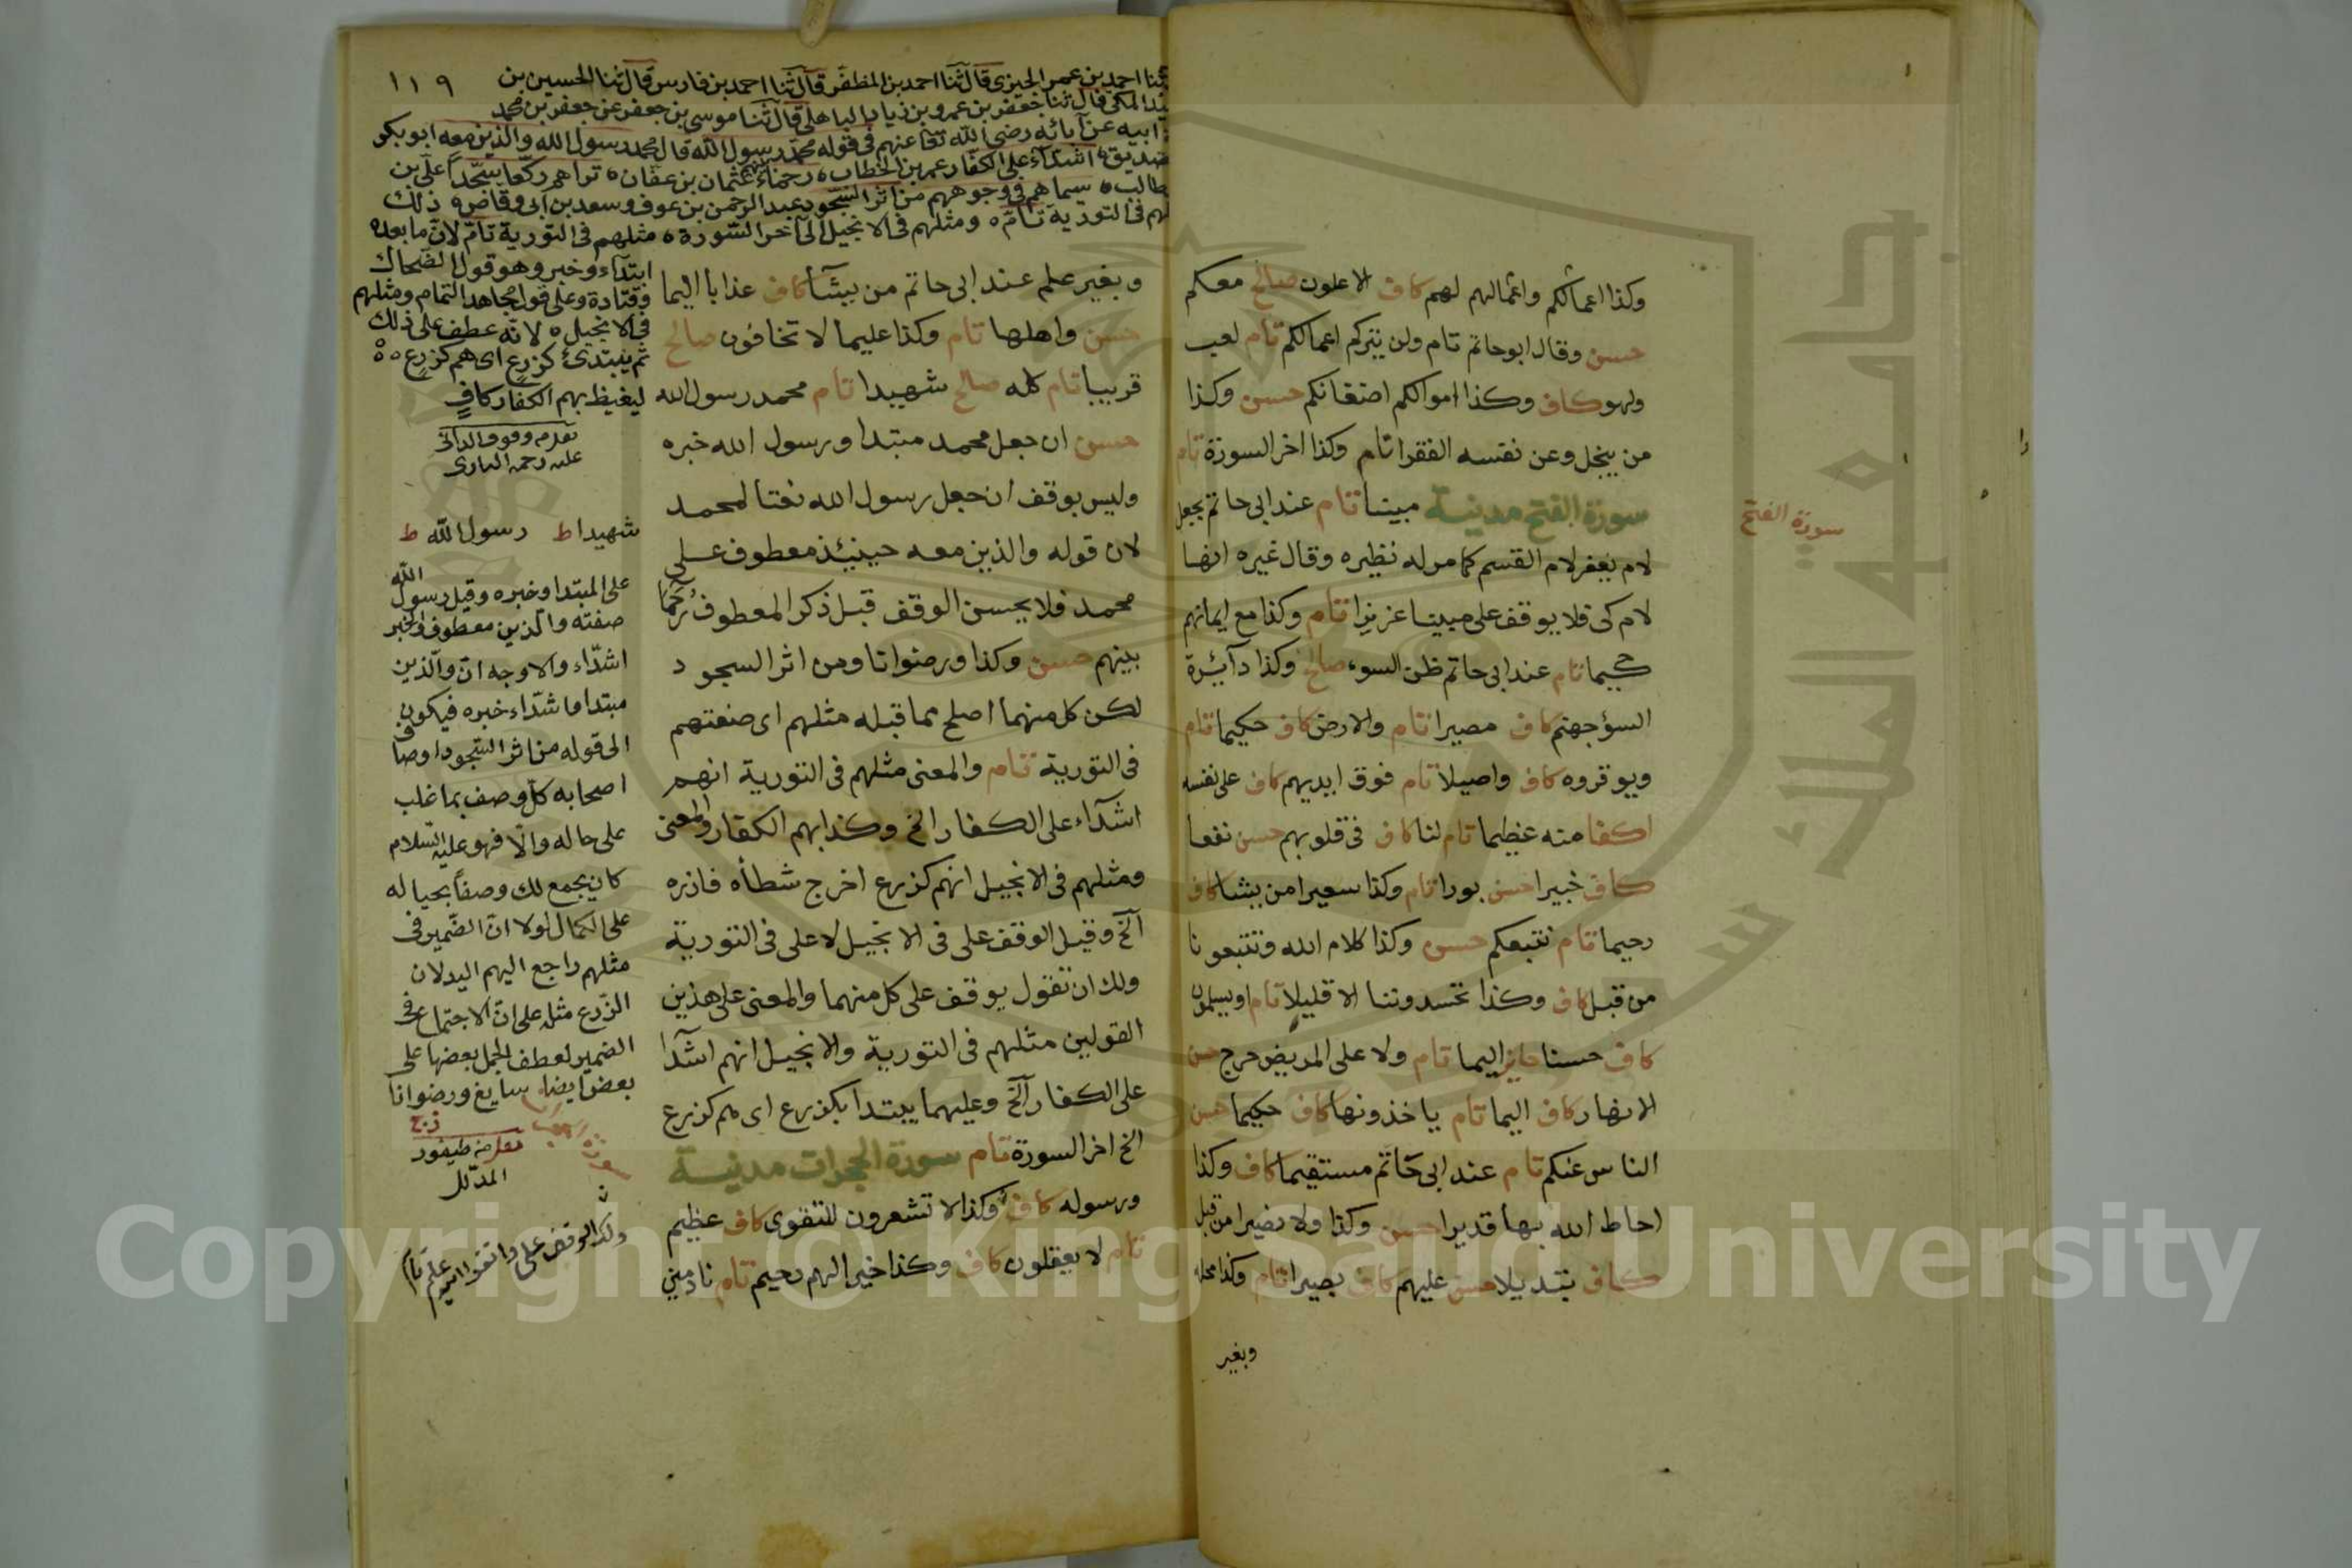 وكذا اعمالكم واعمالهم لهم كاف الاعلون صالح معكم
حسن وقال ابوحاتم تام ولن يتركم اعمالكم تام لعب
ولهو كاف وكذا اموالكم اضغانكم حسن وكذا
من يبخل وعن نفسه الفقرا تام وكذا اخر السورة تام
سورة الفتح مدنية مبينا تام عند ابى حاتم بجعل
سورة الفتح
لام يغفر لام القسم كما مر له نظيره وقال غيره انها
لام كى فلا يوقف على مبينا عزيزا تام وكذا مع ايمانهم
حكيما تام عند ابى حاتم ظن السوء صالح وكذا دآئرة
السؤ جهنم كاف مصيرا تام والارض كاف حكيما تام
ويوقروه كاف واصيلا تام فوق ايديهم كاف على نفسه
اكفا منه عظيما تام لنا كاف فى قلوبهم حسن نفعا
كاف خبيرا حسن بورا تام وكذا سعيرا من يشا كاف
رحيما تام نتبعكم حسن وكذا كلام الله وتتبعونا
من قبل كاف وكذا تحسدوننا الا قليلا تام او يسلمون
كاف حسنا جايز اليما تام ولا على المريض حرج حسن
الانهار كاف اليما تام ياخذونها كاف حكيما حسن
الناس عنكم تام عند ابى حاتم مستقيما كاف وكذا
احاط الله بها قديرا حسن وكذا ولا نصيرا من قبل
كاف تبديلا حسن عليهم كاف بصيرا تام وكذا محله
وبغير
١١٩
ثنا احمد بن عمر الجيزى قال ثنا احمد بن المظفر قال ثنا احمد بن فارس قال ثنا الحسين بن
المكى قال ثنا جعفر بن عمرو بن زياد الباهلى قال ثنا موسى بن جعفر عن جعفر بن محمد
ابيه عن آبائه رضى الله تعا عنهم فى قوله محمد رسول الله قال محمد رسول الله والذين معه ابو بكر
اشدآء على الكفار عمر بن الخطاب رحماء بينهم عثمان بن عفان تراهم ركعا سجدا على بن
طالب سيماهم فى وجوههم من اثر السجود عبد الرحمن بن عوف وسعد بن ابى وقاص ذلك
فى التورية تام ومثلهم فى الانجيل الى آخر السورة مثلهم فى التورية تام لان ما بعده
ابتدآء وخبر وهو قول الضحاك
وقتادة وعلى قول مجاهد التمام ومثلهم
فى الانجيل لانه عطف على ذلك
ثم يبتدئ كزرع اى هم كزرع
ليغيظ بهم الكفار كاف
وبغير علم عند ابى حاتم من يشآ كاف عذابا اليما
حسن واهلها تام وكذا عليما لا تخافون صالح
قريبا تام كله صالح شهيدا تام محمد رسول الله
حسن ان جعل محمد مبتدا ورسول الله خبره
وليس بوقف ان جعل رسول الله نعتا لمحمد
لان قوله والذين معه حينئذ معطوف على
محمد فلا يحسن الوقف قبل ذكر المعطوف رحما
بينهم حسن وكذا ورضوانا ومن اثر السجود
لكن كل منهما اصلح مما قبله مثلهم اى صفتهم
فى التورية تام والمعنى مثلهم فى التورية انهم
اشدآء على الكفار الخ وكذا بهم الكفار والمعنى
ومثلهم فى الانجيل انهم كزرع اخرج شطأه فازره
آلخ وقيل الوقف على فى الانجيل لا على فى التورية
ولك ان تقول يوقف على كل منهما والمعنى على هذين
القولين مثلهم فى التورية والانجيل انهم اشدا
على الكفار آلخ وعليهما يبتدا بكزرع اى هم كزرع
الخ اخر السورة تام سورة الحجرات مدنية
ورسوله كاف وكذا لا تشعرون للتقوى كاف عظيم
تام لا يعقلون كاف وكذا خيرا لهم رحيم تام نادمين
شهيدا ط رسول الله ط
على المبتدا وخبره وقيل رسول الله
صفته والذين معطوف والخبر
اشدّاء والاوجه ان والذين
مبتدا واشدّاء خبره فيكون
الى قوله من اثر السجود اوصاف
اصحابه كل وصف بما غلب
على حاله والا فهو عليه السلام
كان يجمع لك وصفا بحياله
على الكمال لولا ان الضمير فى
مثلهم راجع اليهم
الزرع مثله على ان الاجتماع فى
الضمير لعطف الجمل بعضها على
بعض ايضا سايغ ورضوانا
Copyright © King Saud University
جامعة الملك سعود